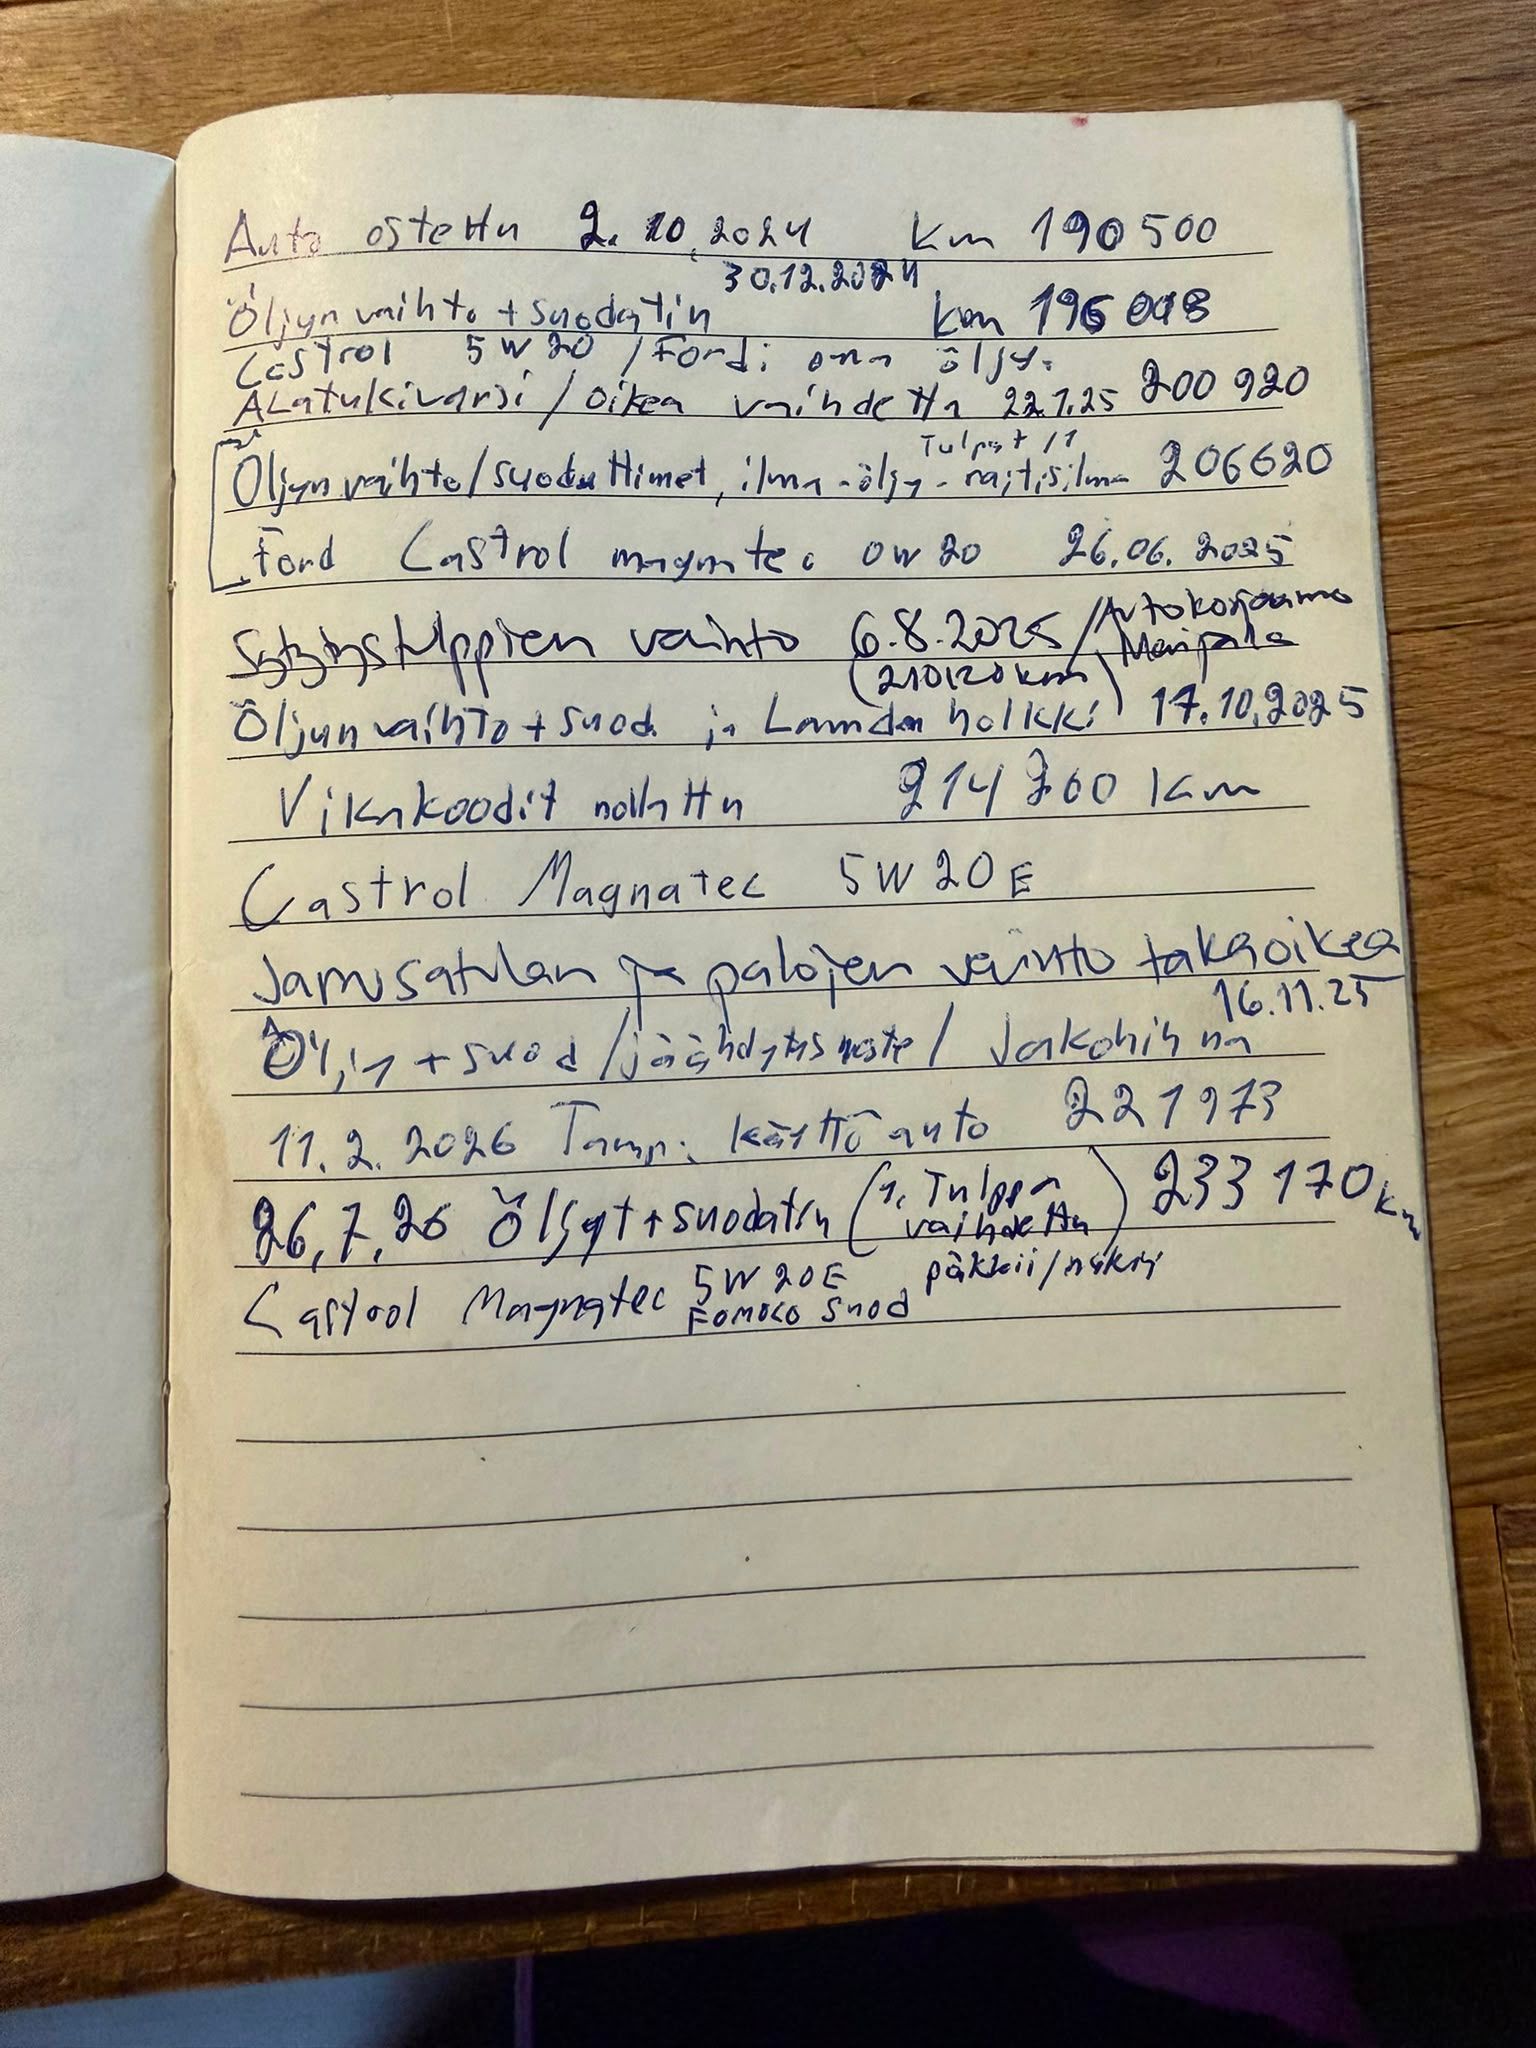 Auto ostettu 2.10.2024 km 190 500
30.12.2024
Öljyn vaihto + suodatin km 196 098
Castrol 5W20 / Fordi oma öljy.
Alatukivarsi / oikea vaihdettu 22.1.25 200 920
Tulpat /1
Öljyn vaihto/suodattimet, ilma-öljy-raitisilma 206620
Ford Castrol magnatec 0W20 26.06.2025
Sytytystulppien vaihto 6.8.2025 / Autokorjaamo
(210120 km)
Öljyn vaihto + suod. ja Lamda holkki 17.10.2025
Vikakoodit nollattu 214 200 km
Castrol Magnatec 5W20E
Jarrusatulan ja palojen vaihto takaoikea
16.11.25
Öljy + suod / jäähdytysneste / Jakohihna
11.2.2026 Tamp. käyttöauto 221973
26.7.26 Öljyt + suodatin (1. Tulppa vaihdettu) 233 170 km
Castrol Magnatec 5W20E
Fomoco suod